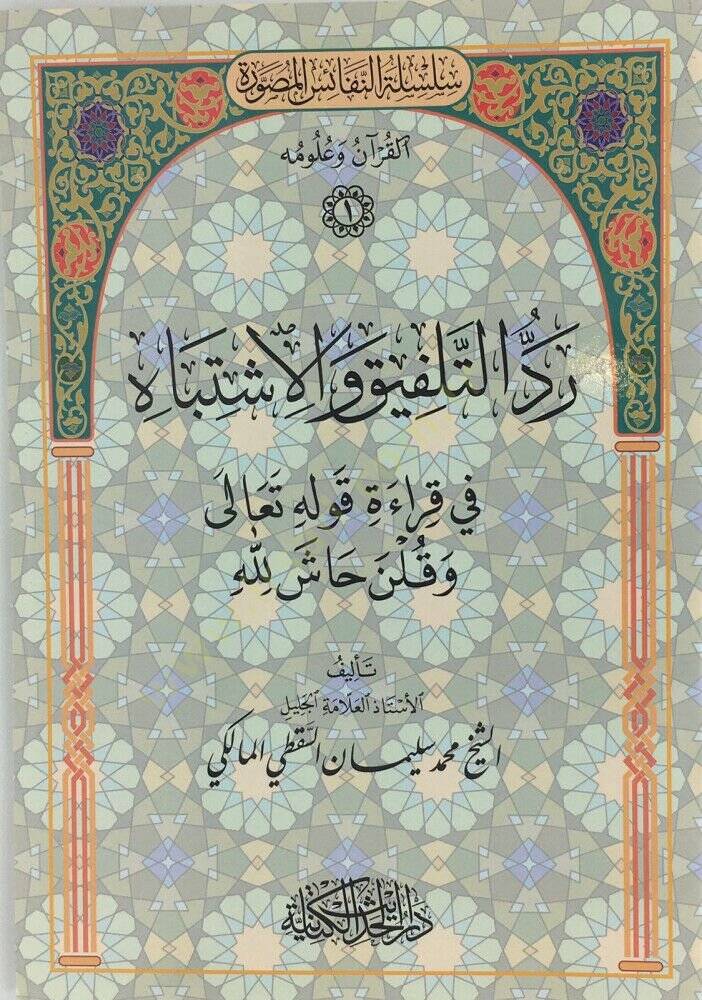 سِلْسِلَةُ النَّفَائِسِ المُصَوَّرَةِ
القُرْآنُ وَعُلُومُه
١
رَدُّ التَّلْفِيقِ وَالِاشْتِبَاهِ
فِي قِرَاءَةِ قَوْلِهِ تَعَالَى
وَقُلْنَ حَاشَ لِلَّهِ
تَأْلِيفُ
الأُسْتَاذِ العَلَّامَةِ الجَلِيلِ
الشيخ محمد سليمان السَّقَطِي المالكي
دار الحديث الكتانية